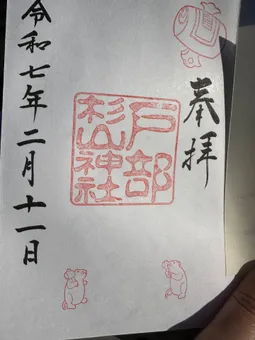 奉拝
戸部
杉山神社
令和七年二月十一日